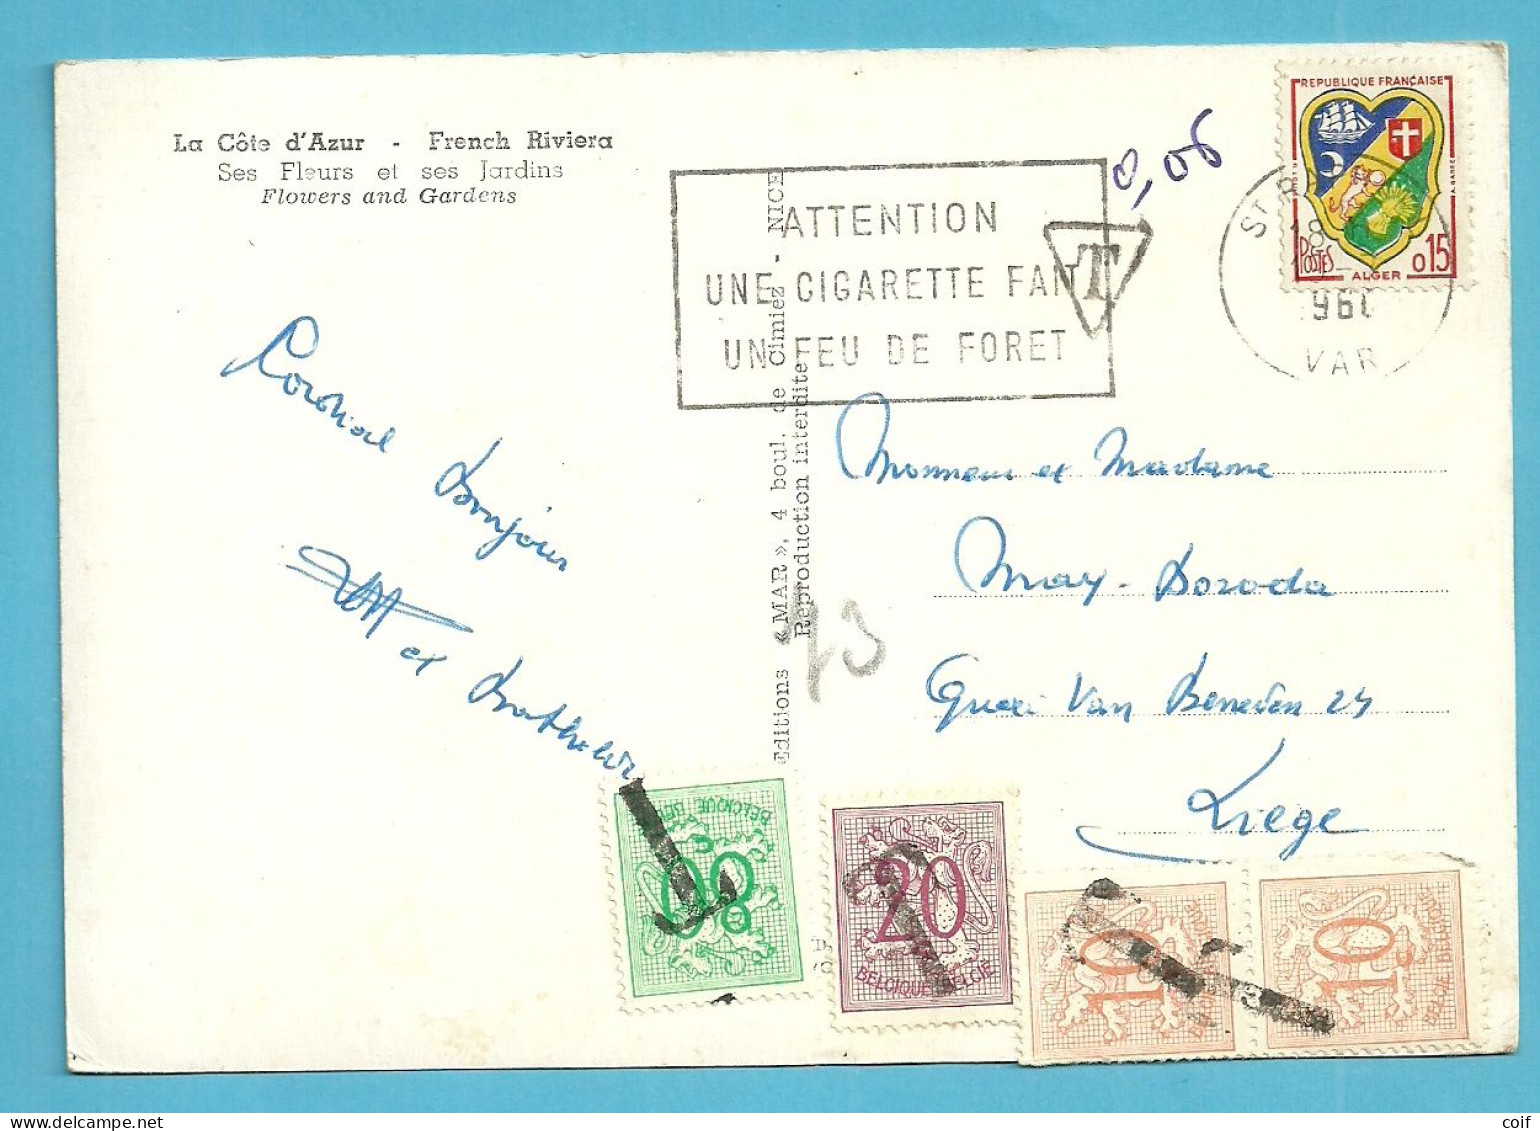 La Côte d'Azur - French Riviera
Ses Fleurs et ses Jardins
Flowers and Gardens
ATTENTION
UNE CIGARETTE FAIT
UN FEU DE FORET
T
0,06
REPUBLIQUE FRANÇAISE
POSTES
ALGER 0,15
ST R
18
196
VAR
Editions « MAR », 4 boul. de Cimiez - NICE
Reproduction interdite
Cordial
Bonjour
et
Monsieur et Madame
May-Doroda
Quai Van Beneden 24
Liege
BELGIQUE BE
80
20
BELGIQUE BELGIE
10
10
BELGIE BELGIQUE
coif